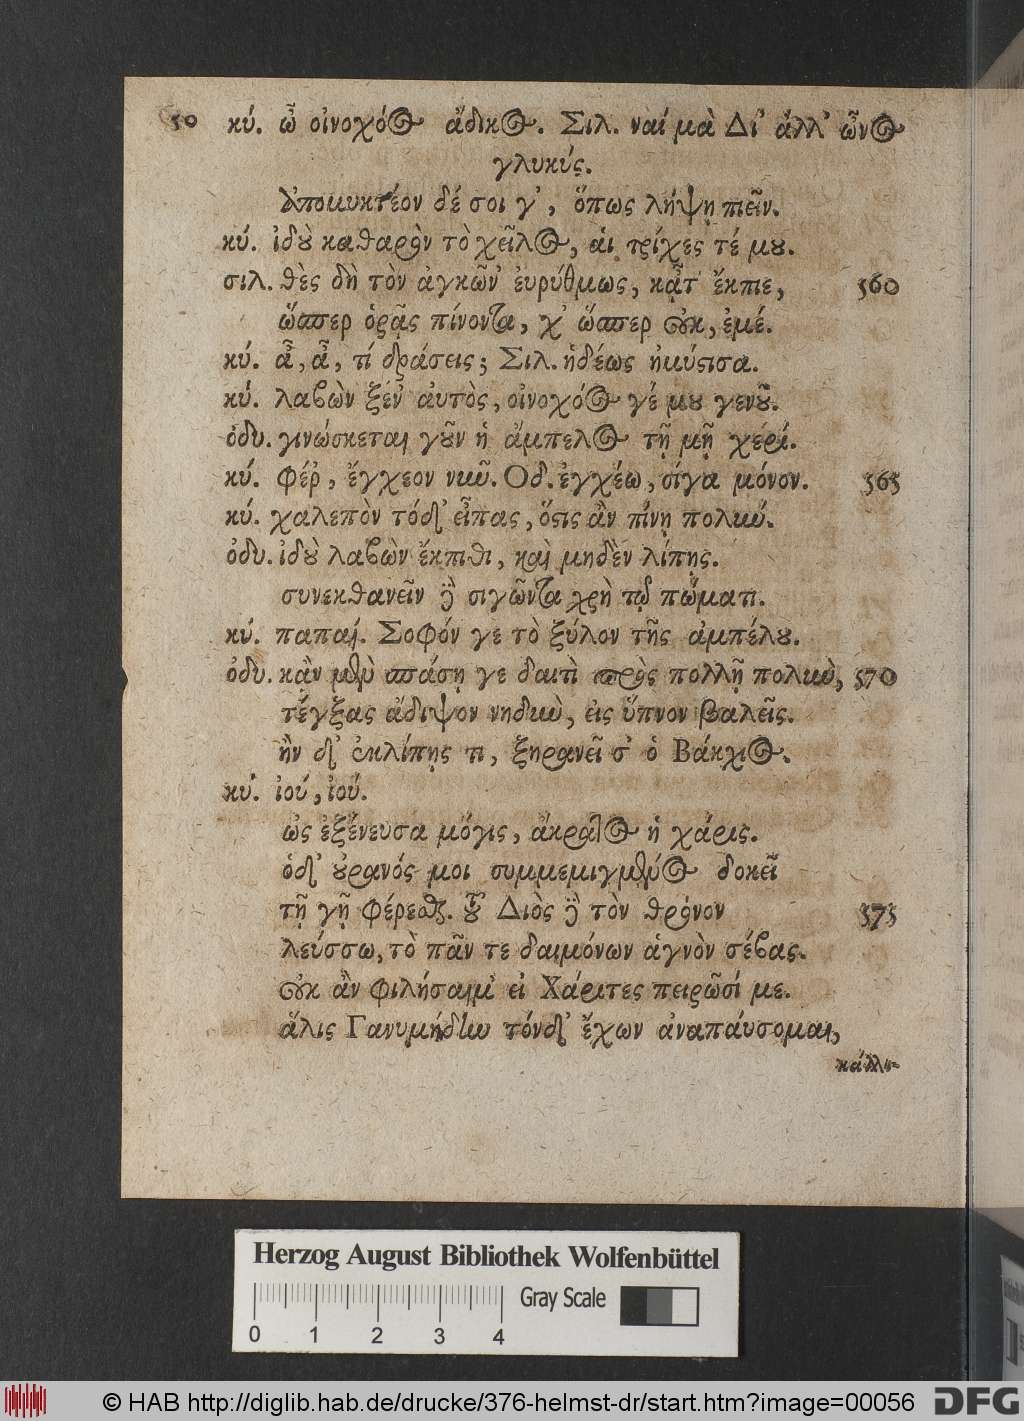 50 κύ. ὦ οἰνοχόος ἄδικος. Σιλ. ναί μὰ Δί' ἀλλ' ὦνος
γλυκύς.
Ἀπομυκτέον δέ σοι γ', ὅπως λήψῃ πιεῖν.
κύ. ἰδοὺ καθαρὸν τὸ χεῖλος, αἱ τρίχες τέ μου.
σιλ. θὲς δὴ τὸν ἀγκῶν' ἐυρύθμως, κᾆτ' ἔκπιε, 560
ὥσπερ ὁρᾷς πίνοντα, χ' ὥσπερ οὐκ, ἐμέ.
κύ. ἆ, ἆ, τί δράσεις; Σιλ. ἡδέως ἠμύστισα.
κύ. λαβὼν ξέν' ἀυτὸς, οἰνοχόος γέ μου γενοῦ.
ὀδυ. γινώσκεται γοῦν ἡ ἄμπελος τῇ μῇ χέρί.
κύ. φέρ', ἔγχεον νιῦ. Οδ. ἐγχέω, σίγα μόνον. 565
κύ. χαλεπὸν τόδ' εἶπας, ὅστις ἂν πίνῃ πολιύ.
ὀδυ. ἰδοὺ λαβὼν ἔκπιθι, καὶ μηδὲν λίπῃς.
συνεκθανεῖν δὲ σιγῶντα χρὴ τῷ πώματι.
κύ. παπαί. Σοφόν γε τὸ ξύλον τῆς ἀμπέλου.
ὀδυ. κᾂν μὲν σπάσῃ γε δαιτὶ πρὸς πολλῇ πολιὺ, 570
τέγξας ἄδιψον νηδιὺ, εἰς ὕπνον βαλεῖς.
ἢν δ' ἐκλίπῃς τι, ξηρανεῖ σ' ὁ Βάκχιος.
κύ. ἰού, ἰού.
ὡς ἐξένευσα μόγις, ἄκρατος ἡ χάρις.
ὁδ' οὐρανός μοι συμμεμιγμένος δοκεῖ
τῇ γῇ φέρεσθαι. τοῦ Διὸς δὲ τὸν θρόνον 575
λεύσσω, τὸ πᾶν τε δαιμόνων ἁγνὸν σέβας.
οὐκ ἂν φιλήσαιμ' εἰ Χάριτες πειρῶσί με.
ἅλις Γανυμήδίω τόνδ' ἔχων ἀναπάυσομαι,
κάλλι-
Herzog August Bibliothek Wolfenbüttel
Gray Scale
0 1 2 3 4
© HAB http://diglib.hab.de/drucke/376-helmst-dr/start.htm?image=00056
DFG